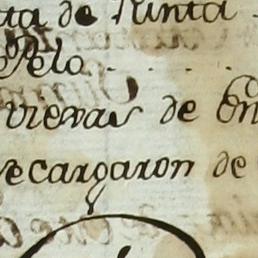 ta de Punta
Pelo . . . . .
vieras de En
ecargaron de